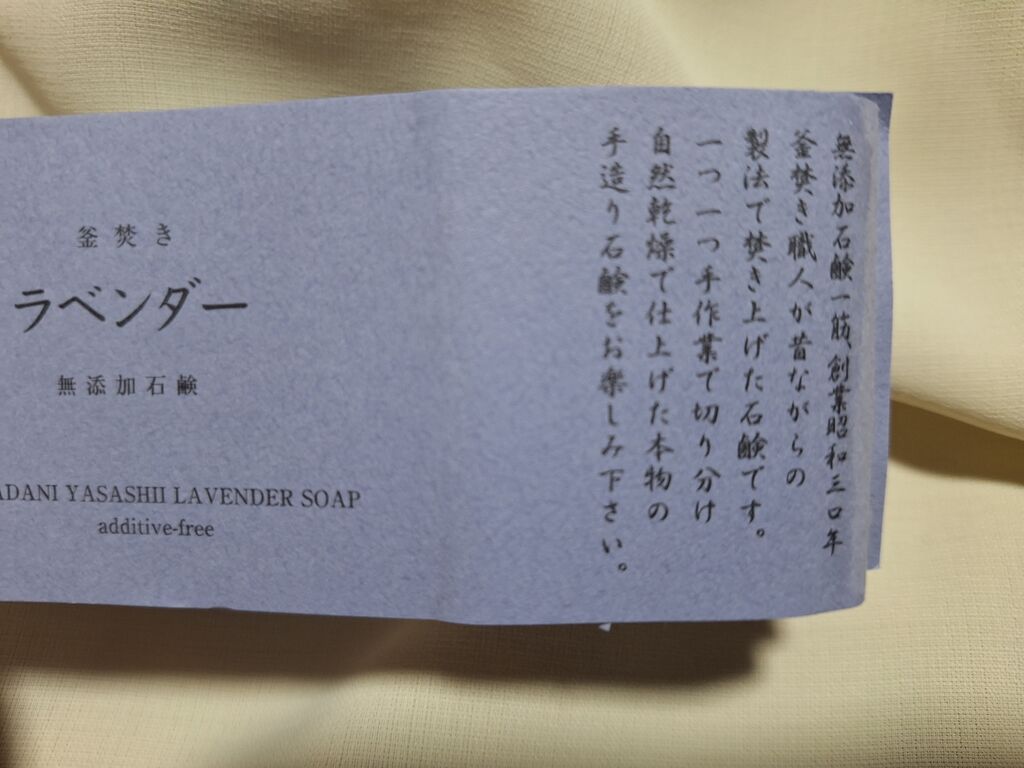 釜焚き
ラベンダー
無添加石鹸
ADANI YASASHII LAVENDER SOAP
additive-free
無添加石鹸一筋、創業昭和三口年
釜焚き職人が昔ながらの
製法で焚き上げた石鹸です。
一つ一つ手作業で切り分け
自然乾燥で仕上げた本物の
手造り石鹸をお楽しみ下さい。